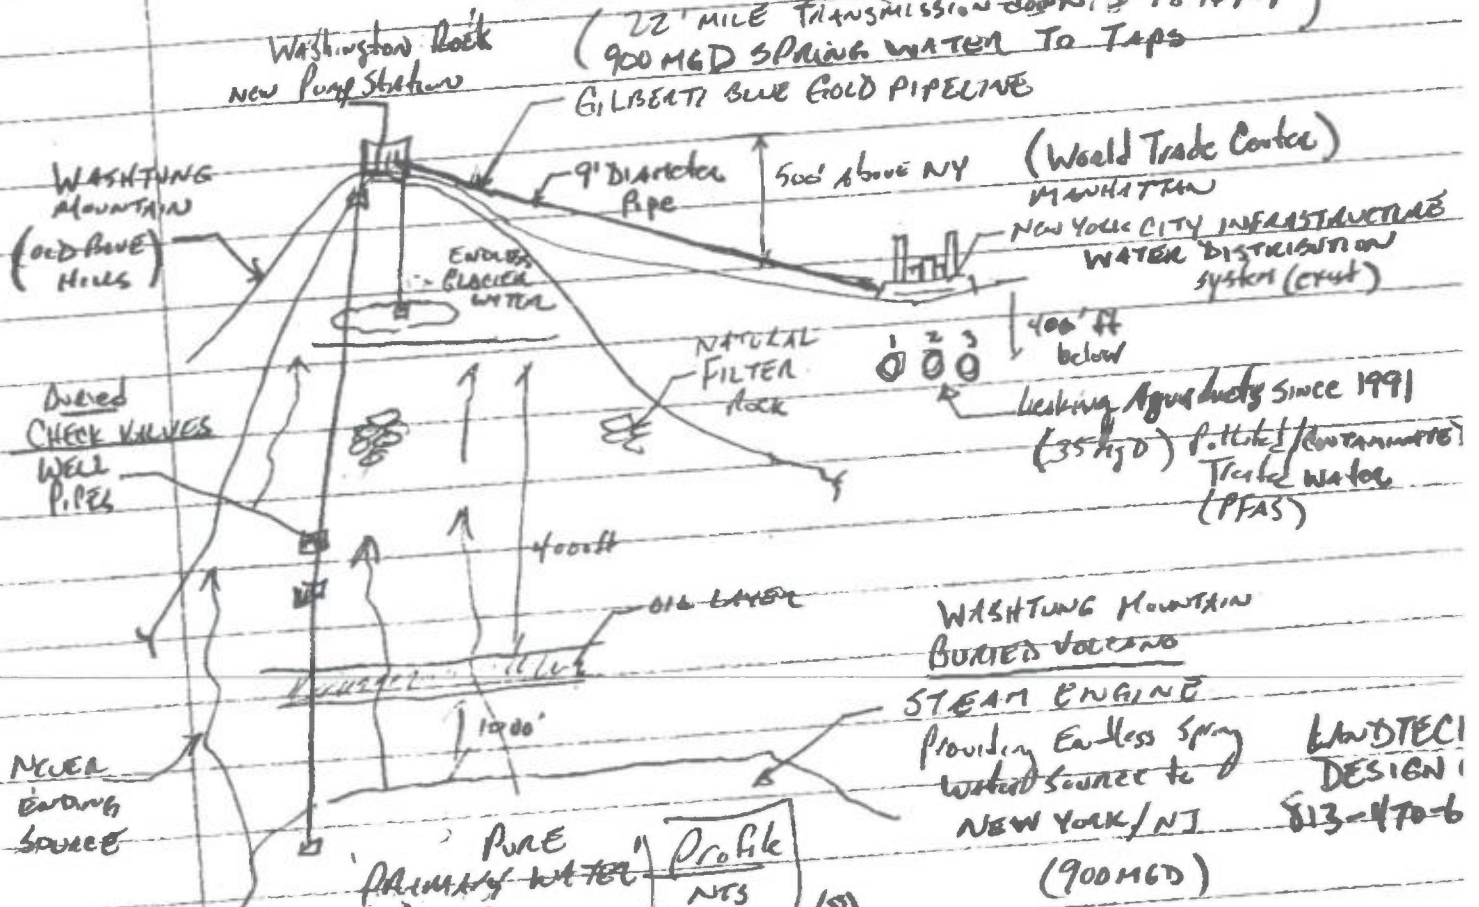 (22' MILE TRANSMISSION
900 MGD SPRING WATER TO TAPS)
Washington Rock
New Pump Station
GILBERTI BLUE GOLD PIPELINE
WASHTUNG
MOUNTAIN
(OLD BLUE
HILLS)
9' DIAMETER
Pipe
500' Above NY
(World Trade Center)
MANHATTAN
NEW YORK CITY INFRASTRUCTURE
WATER DISTRIBUTION
system (exist)
ENDLESS
GLACIER
WATER
NATURAL
FILTER
Rock
1 2 3
400' ft
below
Leaking Aqueducts Since 1991
(35 MgD) Polluted/CONTAMINATE
Treated Water
(PFAS)
Buried
CHECK VALVES
WELL
PIPES
4000ft
OIL LAYER
1000'
NEVER
ENDING
SOURCE
WASHTUNG MOUNTAIN
BURIED VOLCANO
STEAM ENGINE
Providing Endless Spring
Water Source to
NEW YORK/NJ
(900 MGD)
LANDTEC
DESIGN
813-470-6
PURE
"PRIMARY WATER"
Profile
NTS